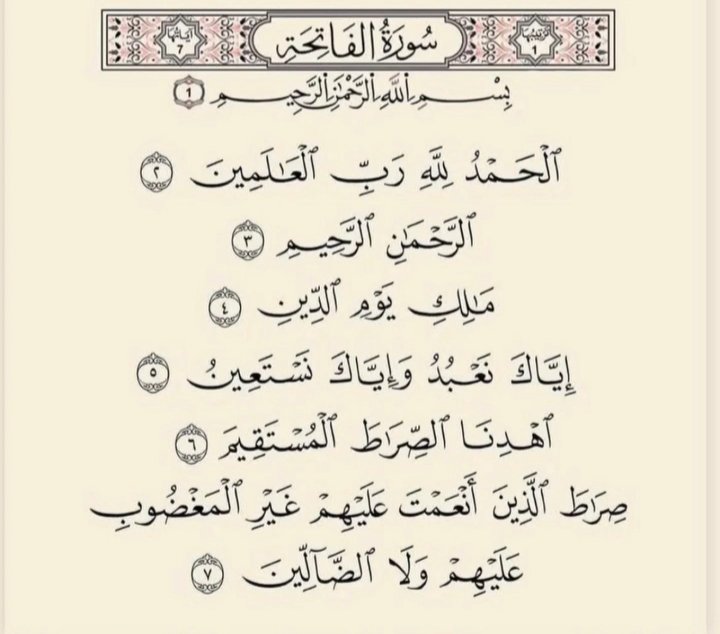 ترتيبها ١ سُورَةُ الفَاتِحَةِ آياتها ٧
بِسۡمِ ٱللَّهِ ٱلرَّحۡمَٰنِ ٱلرَّحِيمِ ١
ٱلۡحَمۡدُ لِلَّهِ رَبِّ ٱلۡعَٰلَمِينَ ٢
ٱلرَّحۡمَٰنِ ٱلرَّحِيمِ ٣
مَٰلِكِ يَوۡمِ ٱلدِّينِ ٤
إِيَّاكَ نَعۡبُدُ وَإِيَّاكَ نَسۡتَعِينُ ٥
ٱهۡدِنَا ٱلصِّرَٰطَ ٱلۡمُسۡتَقِيمَ ٦
صِرَٰطَ ٱلَّذِينَ أَنۡعَمۡتَ عَلَيۡهِمۡ غَيۡرِ ٱلۡمَغۡضُوبِ
عَلَيۡهِمۡ وَلَا ٱلضَّآلِّينَ ٧